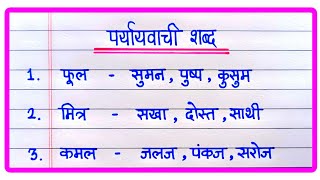 पर्यायवाची शब्द
1. फूल - सुमन, पुष्प, कुसुम
2. मित्र - सखा, दोस्त, साथी
3. कमल - जलज, पंकज, सरोज